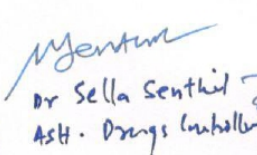 Dr Sella Senthil
Asst. Drugs Controller